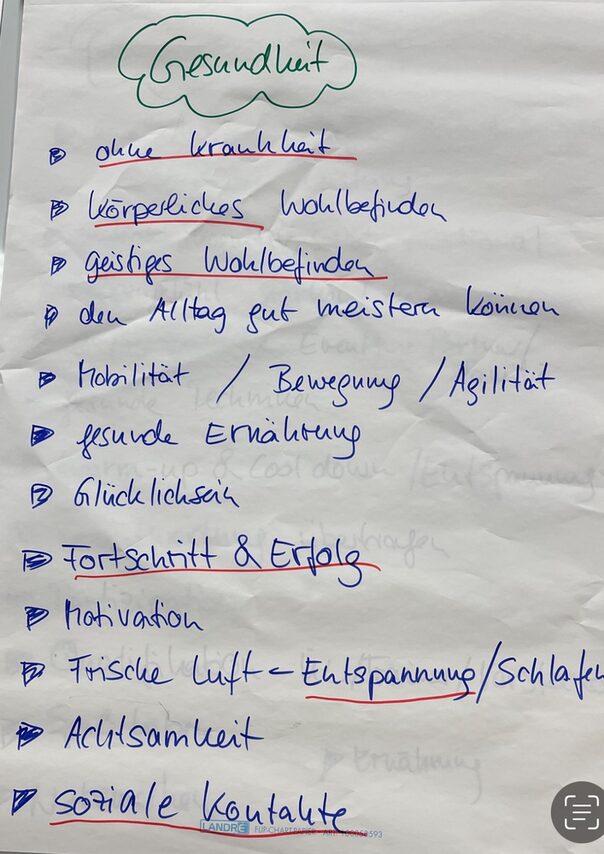 Gesundheit
ohne Krankheit
körperliches Wohlbefinden
geistiges Wohlbefinden
den Alltag gut meistern können
Mobilität / Bewegung / Agilität
gesunde Ernährung
Glücklichsein
Fortschritt & Erfolg
Motivation
Frische Luft – Entspannung/Schlafen
Achtsamkeit
soziale Kontakte
LANDRÉ FLIP-CHART-PAPIER